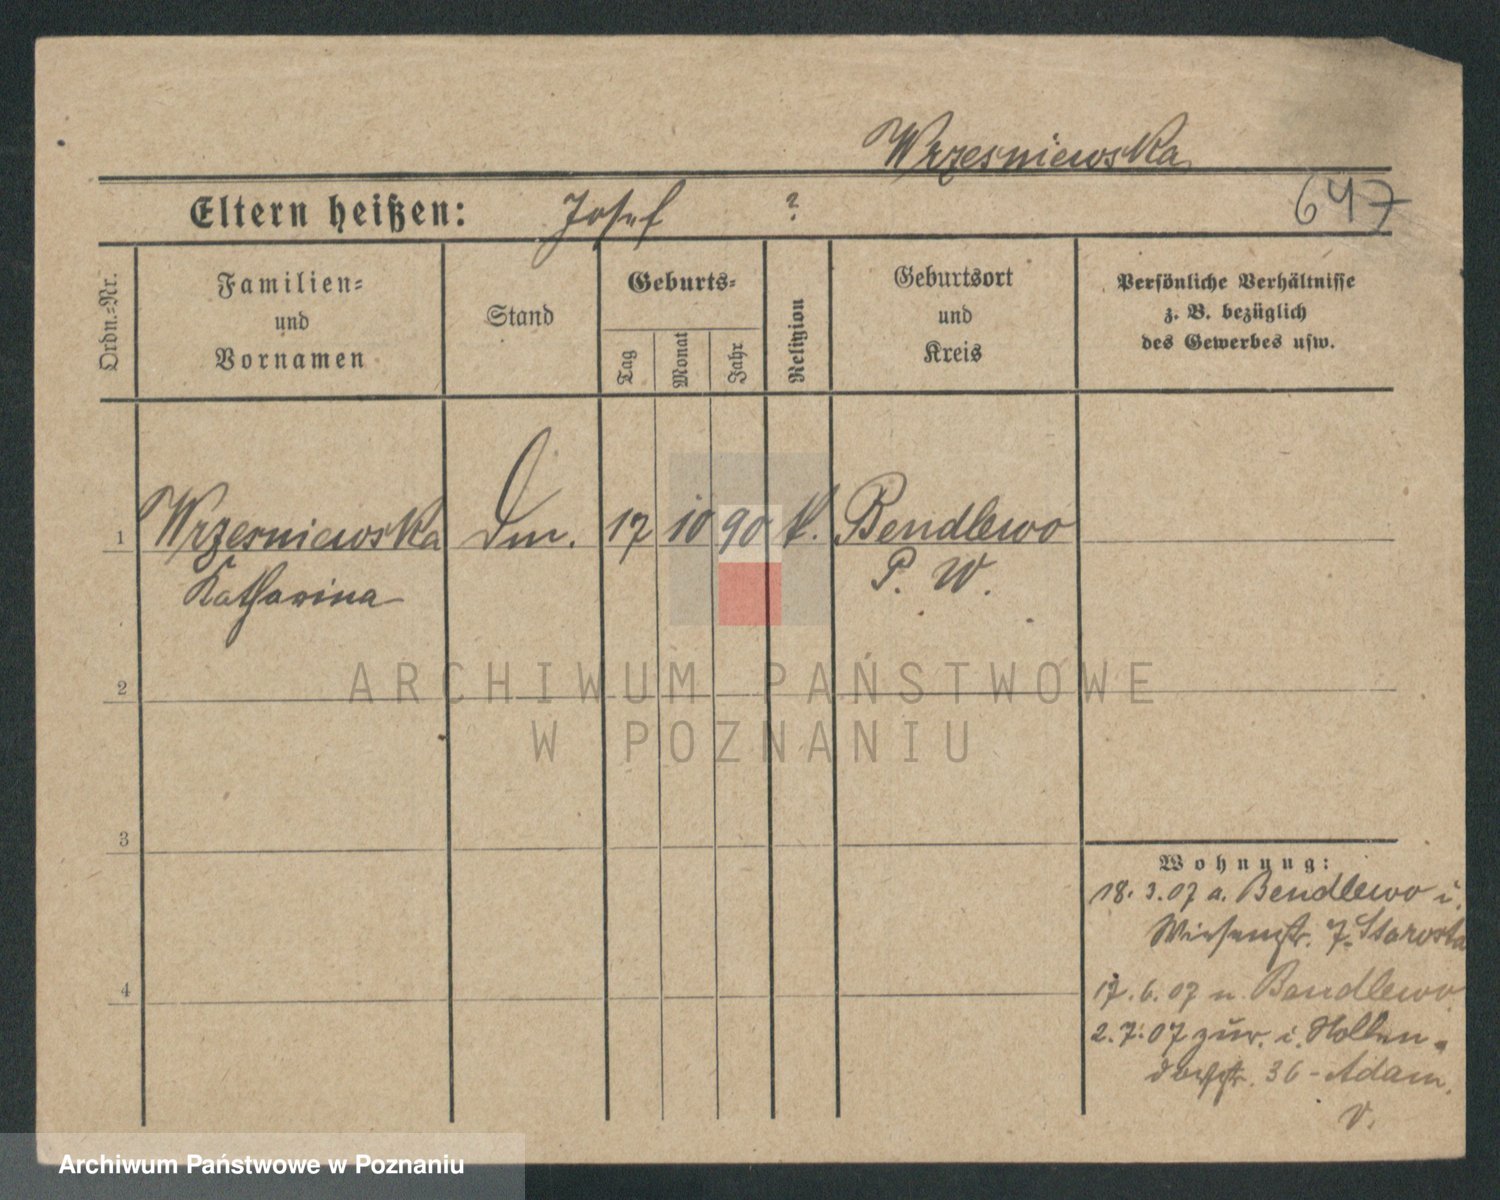 Wrzesniewska
647
Eltern heißen: Josef ?
Ordn.-Nr.
Familien-
und
Vornamen
Stand
Geburts-
Tag
Monat
Jahr
Religion
Geburtsort
und
Kreis
Persönliche Verhältnisse
z. B. bezüglich
des Gewerbes usw.
1 Wrzesniewska Dm. 17 10 90 k. Bendlewo
Katharina P. W.
2
3
4
Wohnung:
18. 3. 07 a. Bendlewo i.
Wiesenstr. 7. Starosta
17. 6. 07 n. Bendlewo
2. 7. 07 zur. i. Hollen-
dorfstr. 36 - Adam.
v.
ARCHIWUM PAŃSTWOWE
W POZNANIU
Archiwum Państwowe w Poznaniu